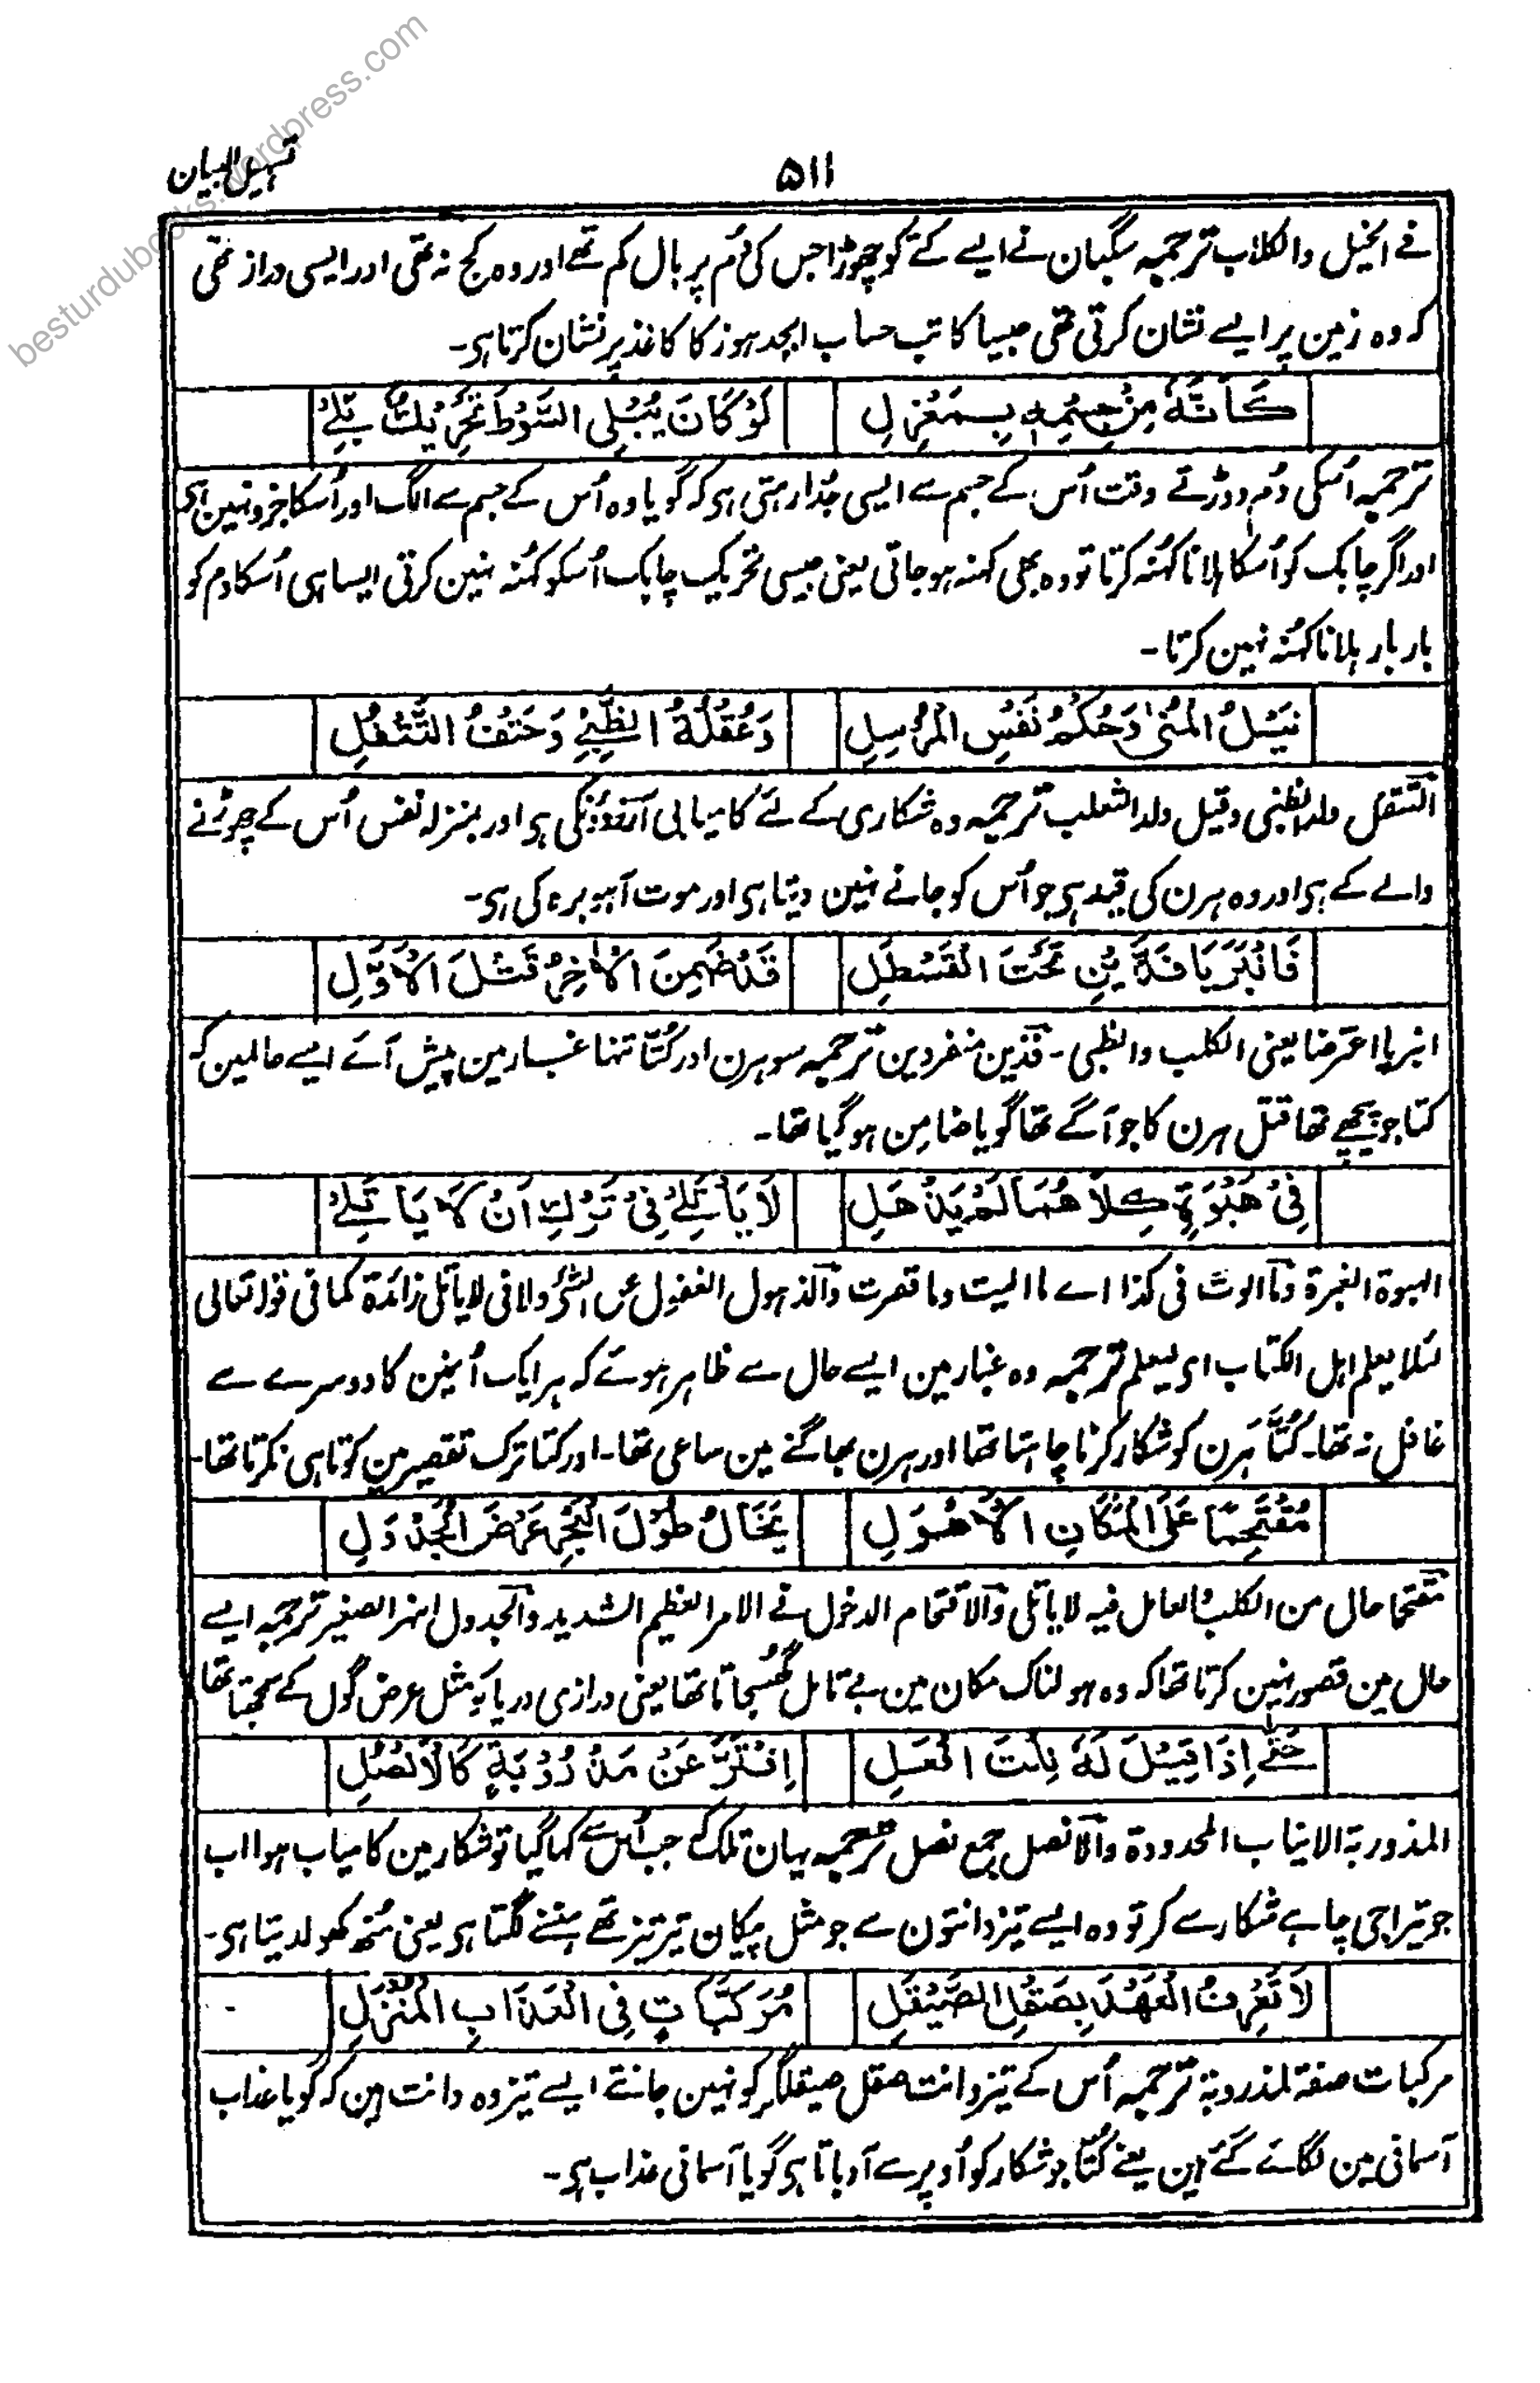 besturdubooks.wordpress.com
تسہیل البیان
۵۱۱
فے الخیل والکلاب ترجمہ سگبان نے ایسے کتے کو چھوڑا جس کی دُم پر بال کم تھے اور وہ کج نہ تھی اور ایسی دراز تھی
کہ وہ زمین پر ایسے نشان کرتی تھی جیسا کاتب حساب ابجد ہوز کا کاغذ پر نشان کرتا ہی۔
كَأَنَّهُ مِنْ جِسْمِهٖ بِمَعْزِلِ لَوْ كَانَ يُبْلِي السَّوْطَ تَحْرِيْكٌ بَلِيْ
ترجمہ اُسکی دُم دوڑتے وقت اُس کے جسم سے ایسی جُدا رہتی ہی کہ گویا وہ اُس کے جسم سے الگ اور اُسکا جزو نہین ہی
اور اگر چابک کو اُسکا ہلانا کہُنہ کرتا تو وہ بھی کہنہ ہو جاتی یعنی جیسی تحریک چابک اُسکو کہُنہ نہین کرتی ایسا ہی اُسکا دم کو
بار بار ہلانا کہُنہ نہین کرتا۔
نَيْلُ الْمُنٰى وَحُكْمُ نَفْسِ الْمُرْسِلِ وَعُقْلَةُ الظَّبْيِ وَحَتْفُ التَّتْفُلِ
التتفل ولد الظبی وقیل ولد الثعلب ترجمہ وہ شکاری کے لئے کامیابی آرزوونکی ہی اور بمنزلہ نفس اُس کے چھوڑنے
والے کے ہی اور وہ ہرن کی قید ہی جو اُس کو جانے نہین دیتا ہی اور موت آہو برہ کی ہی۔
فَانْبَرَيَا فَذَّيْنِ تَحْتَ الْقَسْطَلِ قَدْ ضَمِنَ الْاٰخِرُ قَتْلَ الْاَوَّلِ
انبریا اعترضا یعنی الکلب والظبی۔ فذین منفردین ترجمہ سو ہرن اور کُتّا تنہا غبار مین پیش آئے ایسے حالمین کہ
کتا جو پیچھے تھا قتل ہرن کا جو آگے تھا گویا ضامن ہو گیا تھا۔
فِيْ هَبْوَةٍ كِلَاهُمَا لَمْ يَذْهَلِ لَا يَأْتَلِيْ فِيْ تَرْكِ اَنْ لَا يَأْتَلِيْ
الہبوۃ الغبرۃ وما الوت فی کذا اے ما الیت وما قصرت والذہول الغفول عن الشئ ولا فی لا یاتل زائدۃ کما فی قولہ تعالی
لئلا یعلم اہل الکتاب ای لیعلم ترجمہ وہ غبار مین ایسے حال سے ظاہر ہوئے کہ ہر ایک اُنین کا دوسرے سے
غافل نہ تھا۔ کُتّا ہرن کو شکار کرنا چاہتا تھا اور ہرن بھاگنے مین ساعی تھا۔ اور کتا ترک تقصیر مین کوتاہی نکرتا تھا۔
مُقْتَحِمًا عَلَى الْمَكَانِ الْاَهْوَلِ يَخَالُ طُوْلَ الْبَحْرِ عَرْضَ الْجَدْوَلِ
مقتحما حال من الکلب والعامل فیہ لا یاتلی والاقتحام الدخول فے الامر العظیم الشدید والجدول النہر الصغیر ترجمہ ایسے
حال مین قصور نہین کرتا تھا کہ وہ ہولناک مکان مین بے تامل گھُسجاتا تھا یعنی درازی دریا کو مثل عرض گول کے سمجھتا تھا
حَتّٰى اِذَا قِيْلَ لَهُ نِلْتَ افْعَلِ اِفْتَرَّ عَنْ مَذْرُوْبَةٍ كَالْاَنْصُلِ
المذروبۃ الانیاب المحدودۃ والانصل جمع نصل ترجمہ یہان تلک کہ جب اُس سے کہا گیا تو شکار مین کامیاب ہوا اب
جو تیرا جی چاہے شکار سے کر تو وہ ایسے تیز دانتون سے جو مثل پیکان تیر تیز تھے ہنسنے لگتا ہی یعنی مُنھ کھولدیتا ہی۔
لَا تَعْرِفُ الْعَهْدَ بِصَقْلِ الصَّيْقَلِ مُرَكَّبَاتٍ فِي الْعَذَابِ الْمُنْزَلِ
مرکبات صفۃ لمذروبۃ ترجمہ اُس کے تیز دانت صقل صیقلگر کو نہین جانتے ایسے تیز وہ دانت ہین کہ گویا عذاب
آسمانی مین لگائے گئے ہین یعنے کُتّا جو شکار کو اُوپر سے آدباتا ہی گویا آسمانی عذاب ہی۔